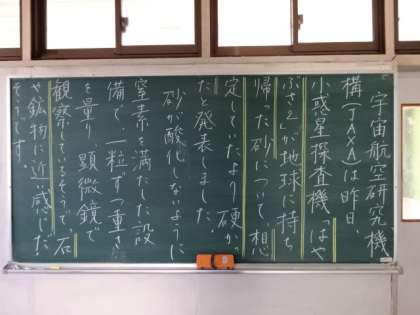 宇宙航空研究機
構(JAXA)は昨日、
小惑星探査機「はや
ぶさ2」が地球に持ち
帰った砂について、想
定していたより硬かっ
たと発表しました。
砂が酸化しないように
窒素を満たした設
備で、一粒ずつ重さ
を量り、顕微鏡で
観察しているそうで、石
や鉱物に近い感じだ
そうです。